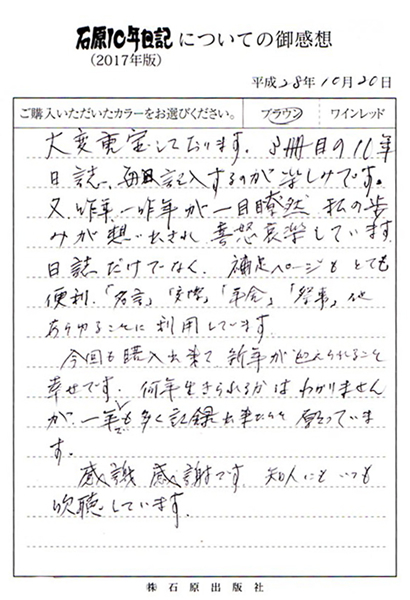 石原10年日記についての御感想
(2017年版)
平成28年10月20日
ご購入いただいたカラーをお選びください。 ブラウン ワインレッド
大変重宝しております。3冊目の10年
日誌、毎日記入するのが楽しみです。
又、昨年、一昨年が一目瞭然 私の歩
みが想い出され 喜怒哀楽しています
日誌だけでなく、補足ページも とても
便利、「名言」「交際」「年会」「祭事」他
あらゆることに利用しています。
今回も購入出来て 新年が迎えられること
幸せです。何年生きられるかはわかりません
が、一年でも多く記録出来たらと願っていま
す。
感謝 感謝です 知人にもいつも
吹聴しています。
㈱石原出版社